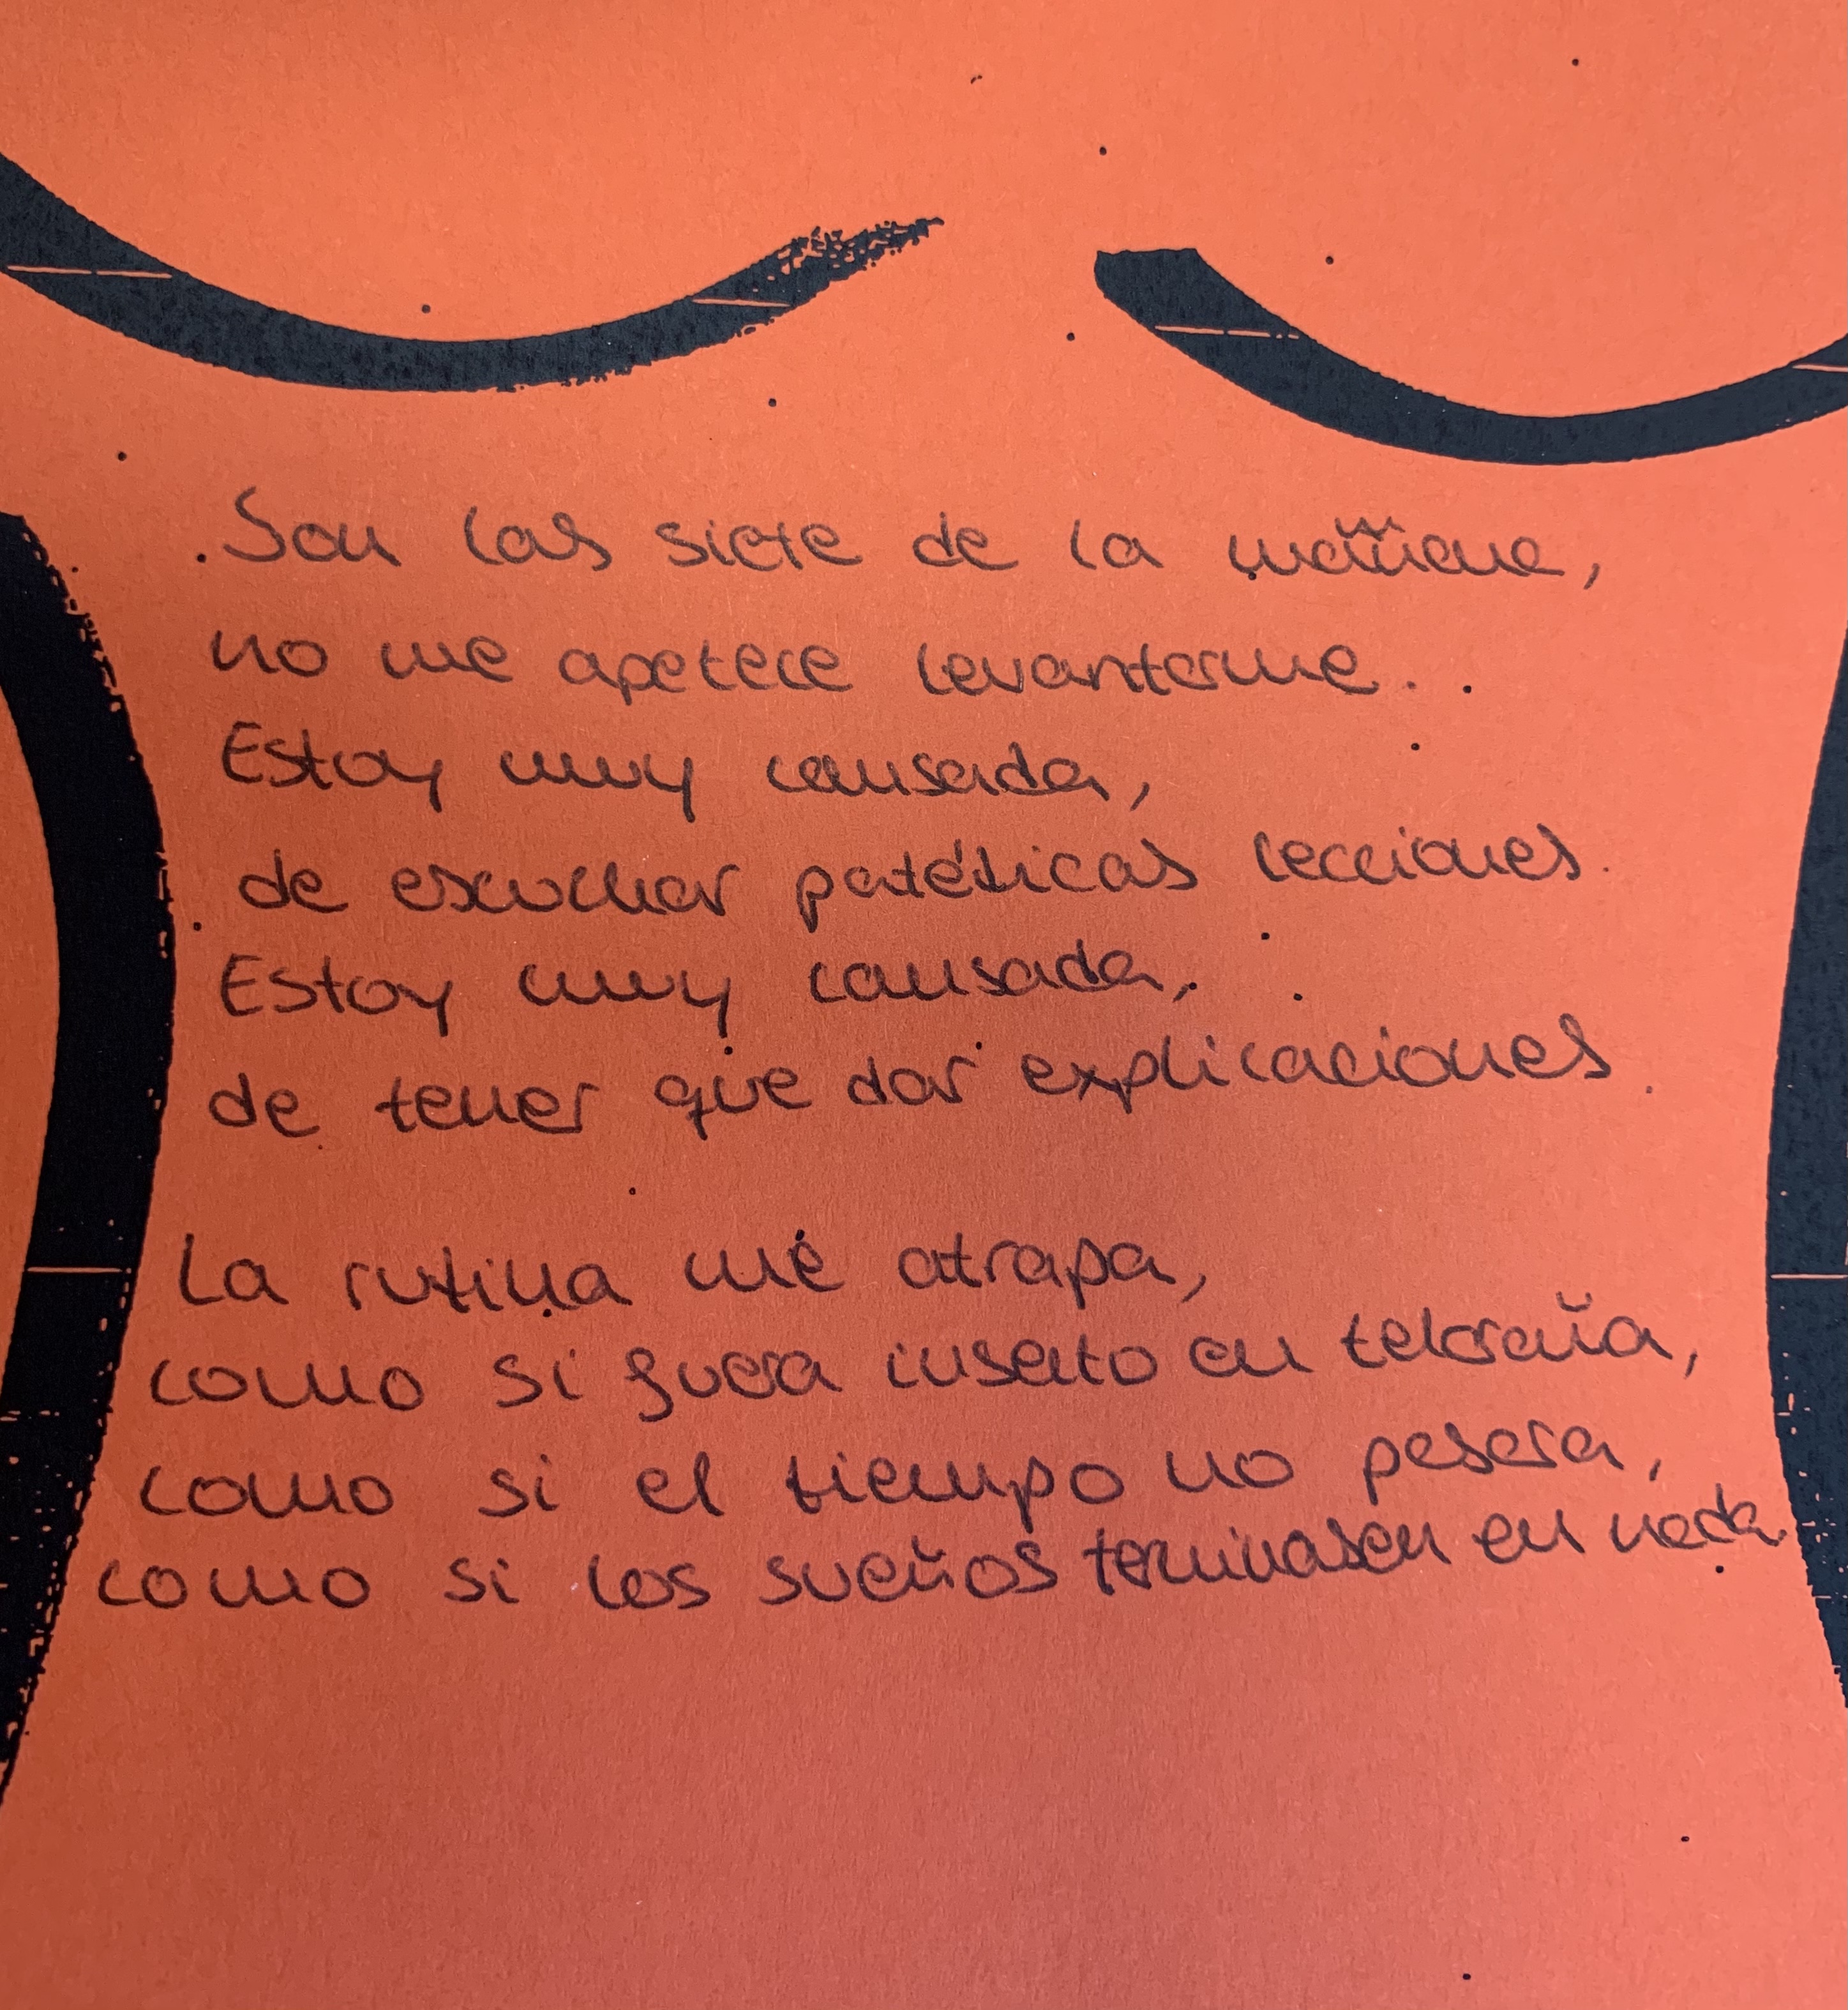 Son las siete de la mañana,
no me apetece levantarme.
Estoy muy cansada,
de escuchar patéticas lecciones.
Estoy muy cansada,
de tener que dar explicaciones.
La rutina me atrapa,
como si fuera insecto en telaraña,
como si el tiempo no pesara,
como si los sueños terminasen en nada.